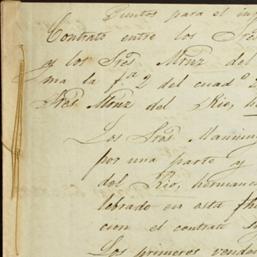 Puntos para el in
Contrato entre los Sres
y los Sres Mrnz del
ma la fa 2 del cuad o 2
Sres Mrnz del Rio, h
Los Sres Manning
por una parte y
del Rio, hermano
lebrado en esta fh
cion el contrato s
Los primeros vende